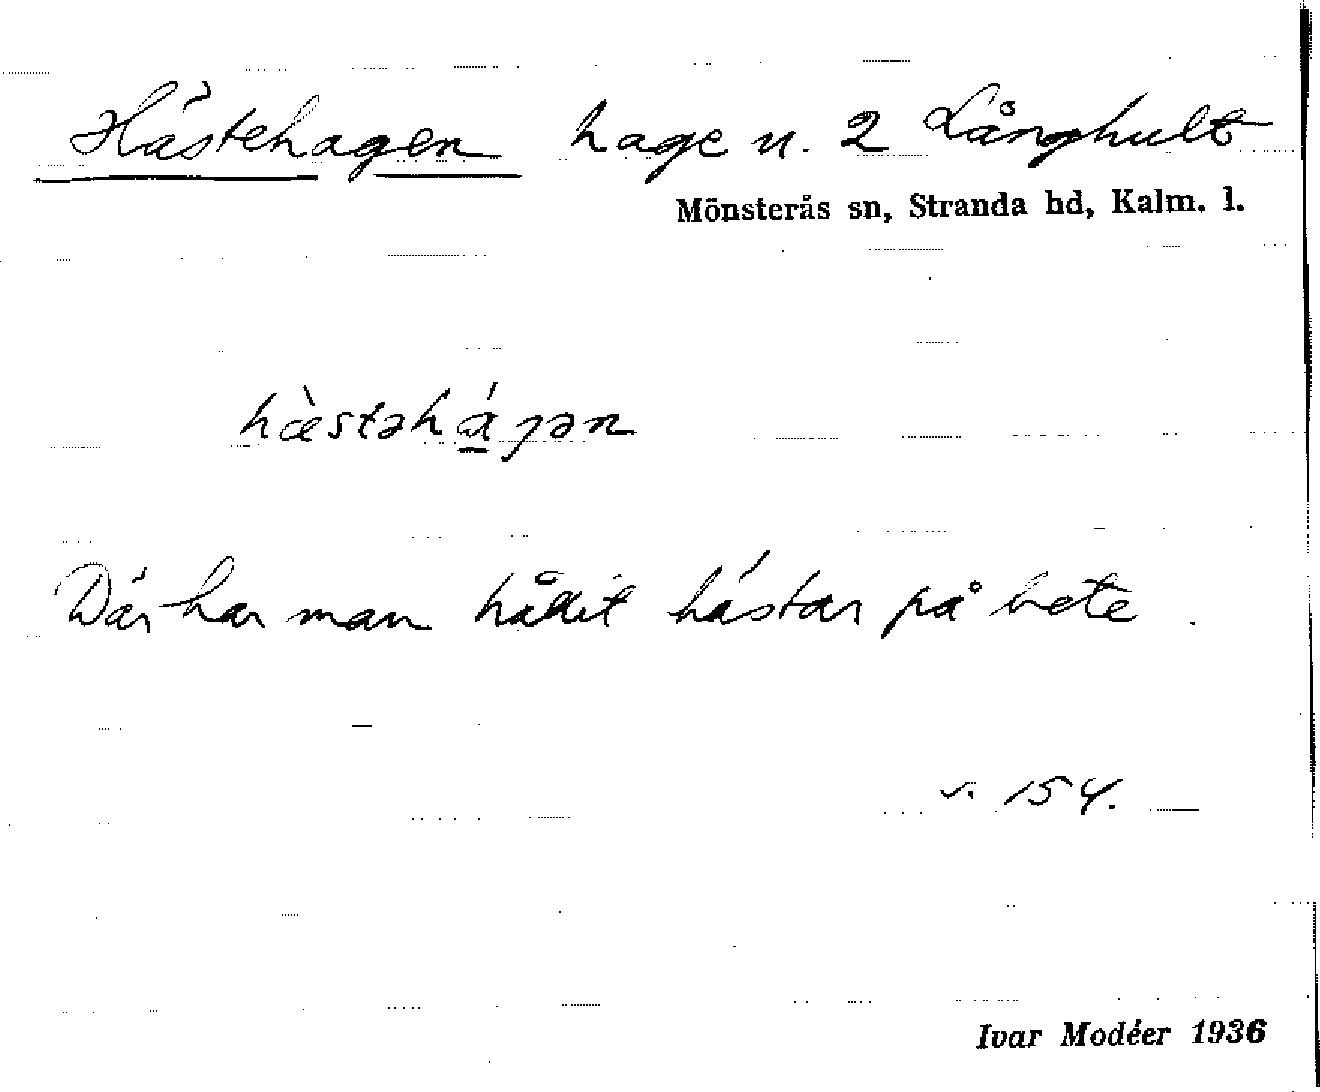 Hästehagen hage n. 2 Långhult
Mönsterås sn, Stranda hd, Kalm. l.
hæ̀stəhá̱gən
Där har man hållit hästar på bete.
s. 154.
Ivar Modéer 1936